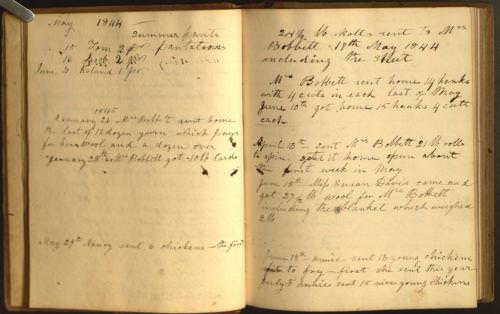 May 1844
Summer pants
15 Tom 2 pr. pantaloons
16 2 pr
June 3 Roland 1 pr.
1845
January 26 Mrs Bobbitt sent home
the last of 12 dozen yarn which pays
for her wool and a dozen over
January 28th Mrs Bobbitt got 10 lb lard
May 29th Nancy sent 6 chickens - the first
lb rolls sent to Mrs
Bobbett 18th May 1844
including the sheet
Mrs Bobbett sent home 14 hanks
with 4 cuts in each last of May
June 10th got home 15 hanks 4 cuts
each
April 10th - sent Mrs Bobbett 21 lb rolls
to spin. got it home spun about
the first week in May
June 18th - Miss Susan Davis came and
got 27 1/2 lb wool for Mrs Bobbett
including the blanket which weighed
2 lb
June 18th - Annie sent 18 young chickens
to fry - first she sent this year
July 3 Annie sent 15 nice young chickens